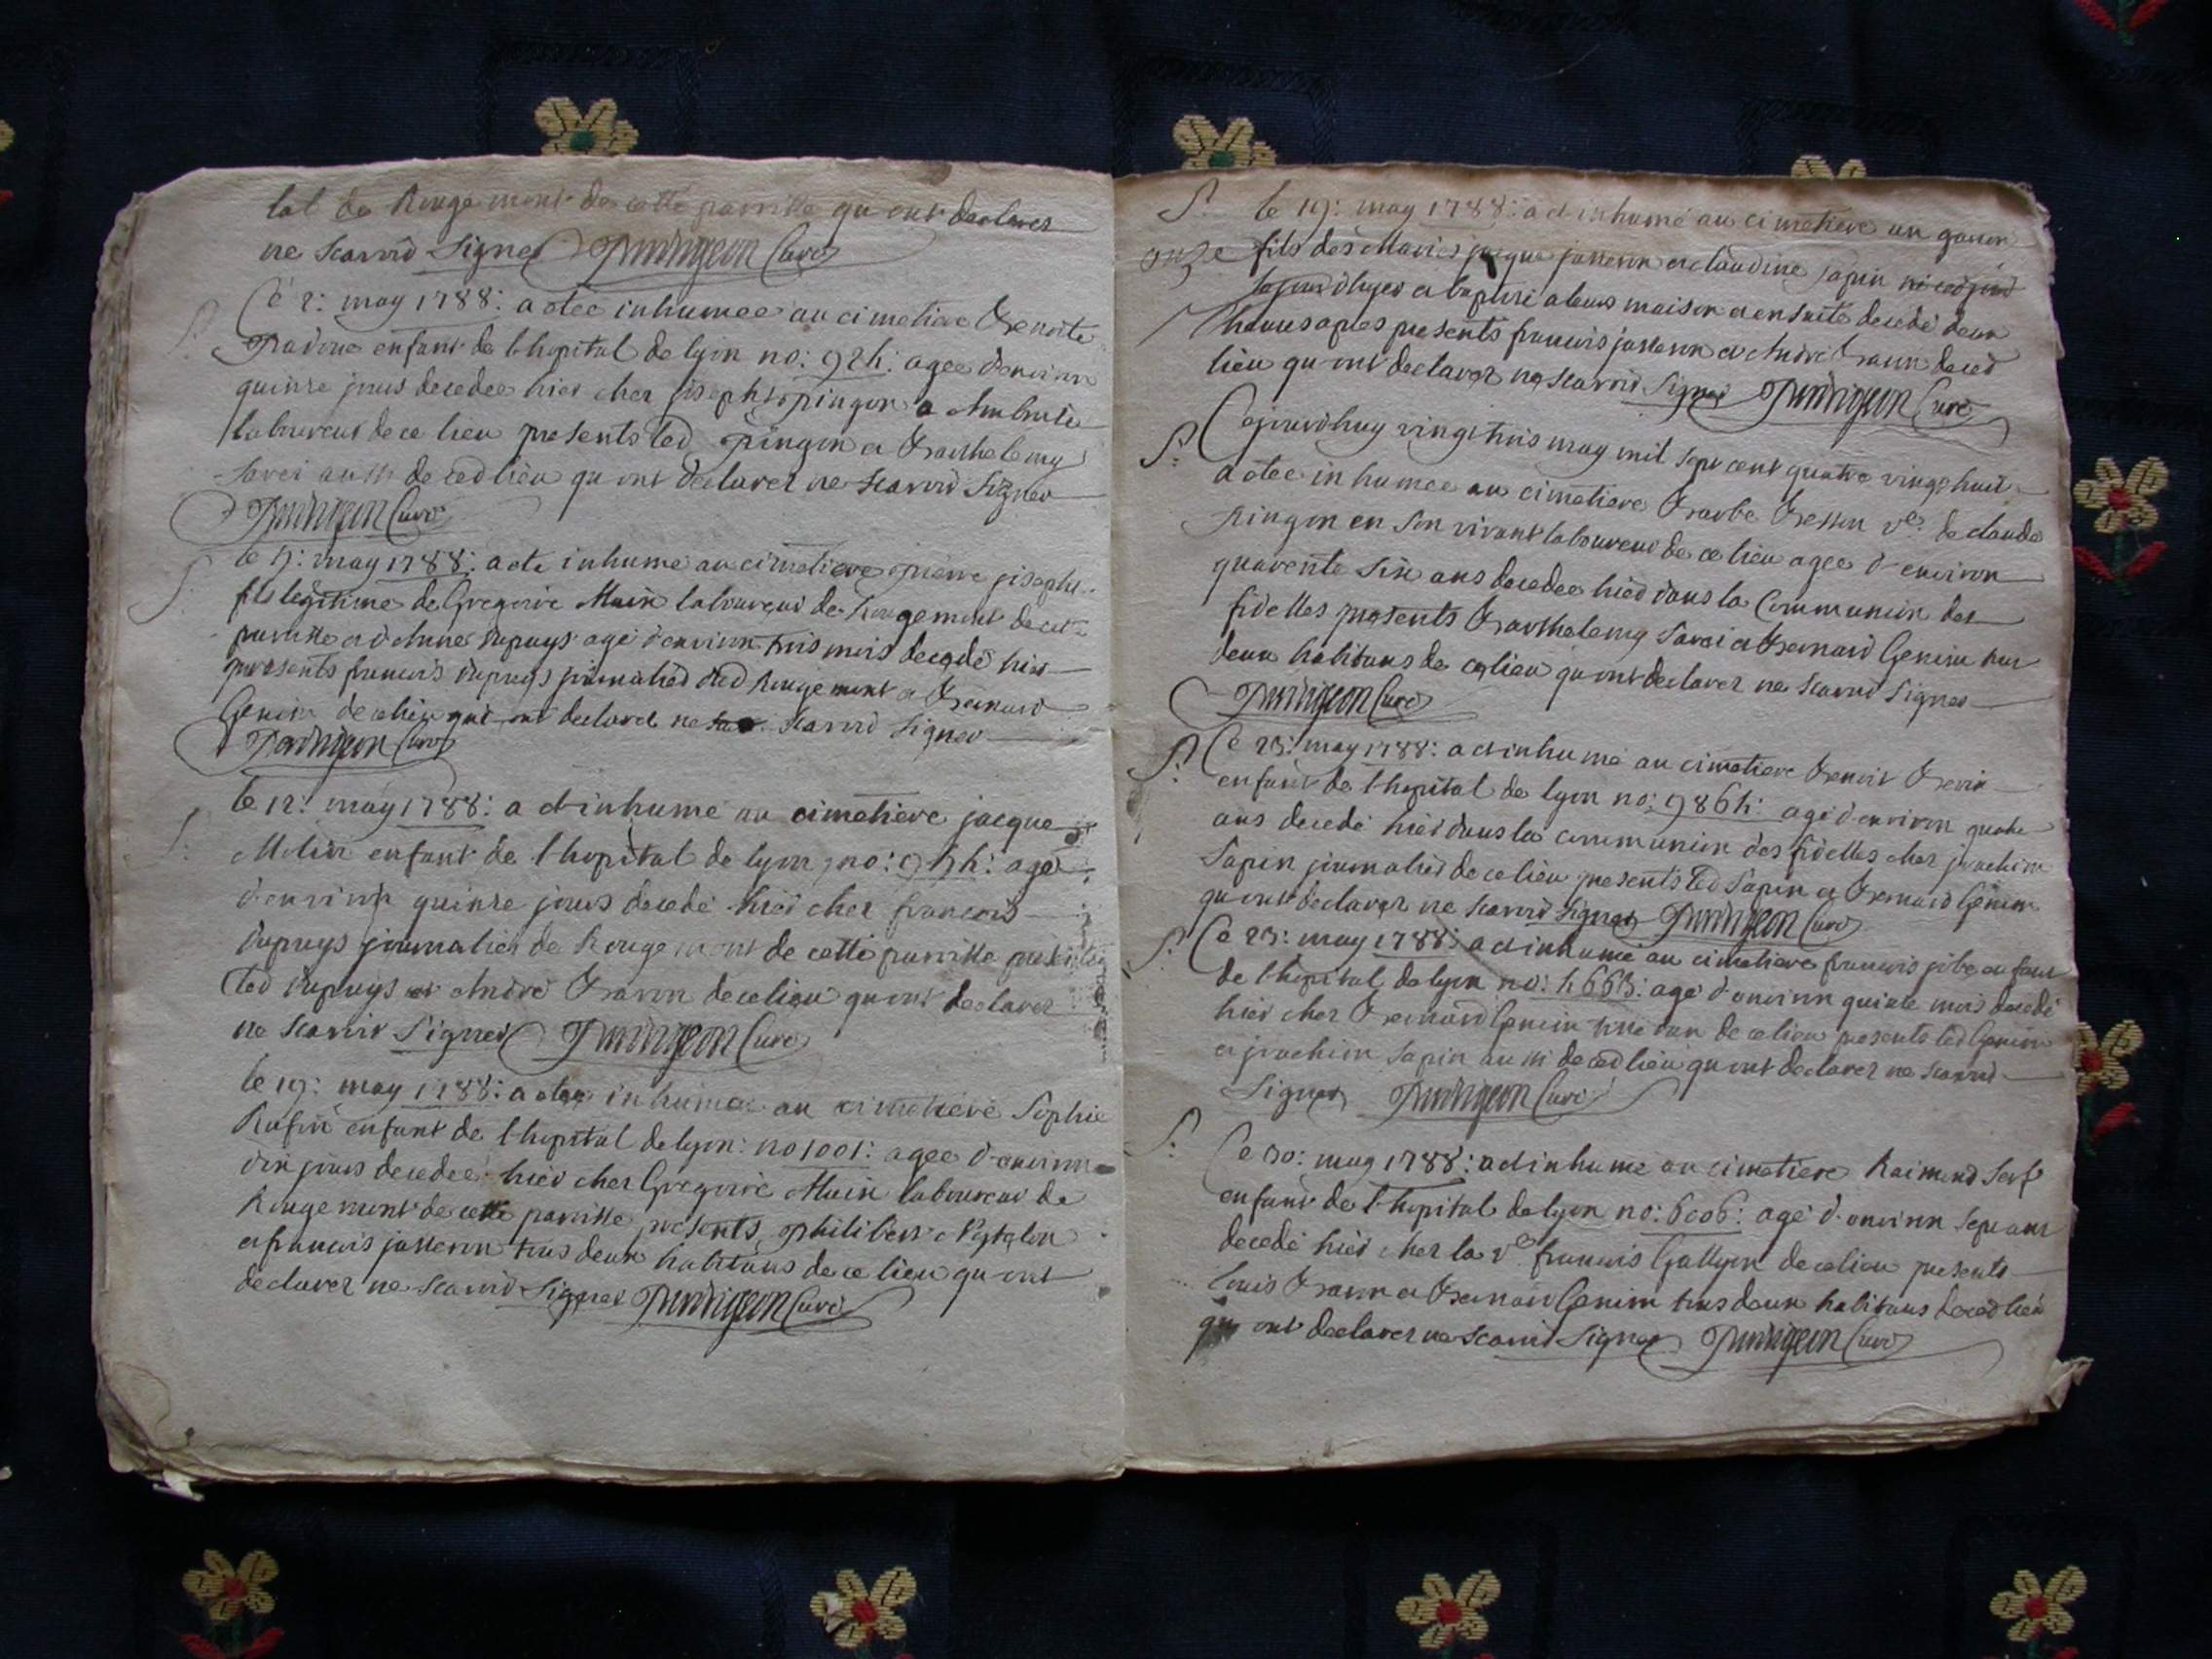 tal de Rougemont de cette parroisse qu ont declarer
ne scavoir signer curé
Le 2: may 1788: a etée inhumee au cimetiere Benoite
enfant de l hopital de lyon no: 924: agee d'environ
quinze jours decedee hier cher joseph pingon a
laboureur de ce lieu presents led pingon et Barthelemy
Savei aussi de ced lieu qu ont declarer ne scavoir signer
curé
le may 1788: a ete inhumé au cimetiere pierre joseph
fils legitime de Gregoire Main laboureur de Rougemont de cette
parroisse et d'Anne dupuys agé d'environ trois mois decedé hier
presents francois dupuys journalier dud Rougement et Bernard
Genin de ce lieu qui ont declarer ne scavoir signer
curé
le 12: may 1788: a et inhumé au cimetiere jacque
Molin enfant de l hopital de lyon no: agé
d'environ quinze jours decedé hier cher francois
dupuys journalier de Rougemont de cette parroisse presents
led dupuys et André de ce lieu qu ont declarer
ne scavoir signer curé
le 19: may 1788: a etee inhumee au cimetiere Sophie
Rufin enfant de l hopital de lyon: no 1001: agee d'environ
dix jours decedee hier cher Gregoire Main laboureur de
Rougemont de cette parroisse presents philibert
et francois jasseron tous deux habitans de ce lieu qu ont
declarer ne scavoir signer curé
le 19: may 1788: a et inhumé au cimetiere un garcon
onze fils des Mariés jacque jasseron et claudine Sapin
et baptisé a leurs maison et ensuite decedé deux
heures apres presents francois jasseron et André de ced
lieu qu ont declarer ne scavoir signer curé
Cejourdhuy vingt trois may mil sept cent quatre vingt huit
a etee inhumee au cimetiere Barbe Besson ve de claude
pingon en son vivant laboureur de ce lieu agee d'environ
quarente six ans decedee hier dans la Communion des
fidelles presents Barthelemy Savei et Bernard Genin tous
deux habitans de ce lieu qu ont declarer ne scavoir signer
curé
Le 23: may 1788: a et inhumé au cimetiere Benoit
enfant de l hopital de lyon no: 9864: agé d'environ quatre
ans decedé hier dans la communion des fidelles cher joachim
Sapin journalier de ce lieu presents led Sapin et Bernard Genin
qu ont declarer ne scavoir signer curé
Le 23: may 1788: a et inhumé au cimetiere francois enfant
de l hopital de lyon no: agé d'environ quinze mois decedé
hier cher Bernard Genin de ce lieu presents led Genin
et joachim Sapin aussi de ced lieu qu ont declarer ne scavoir
signer curé
Le 30: may 1788: a et inhumé au cimetiere Raimond
enfant de l hopital de lyon no: 6006: agé d'environ sept ans
decedé hier cher la ve francois de ce lieu presents
louis et Bernard Genin tous deux habitans de ced lieu
qu ont declarer ne scavoir signer curé